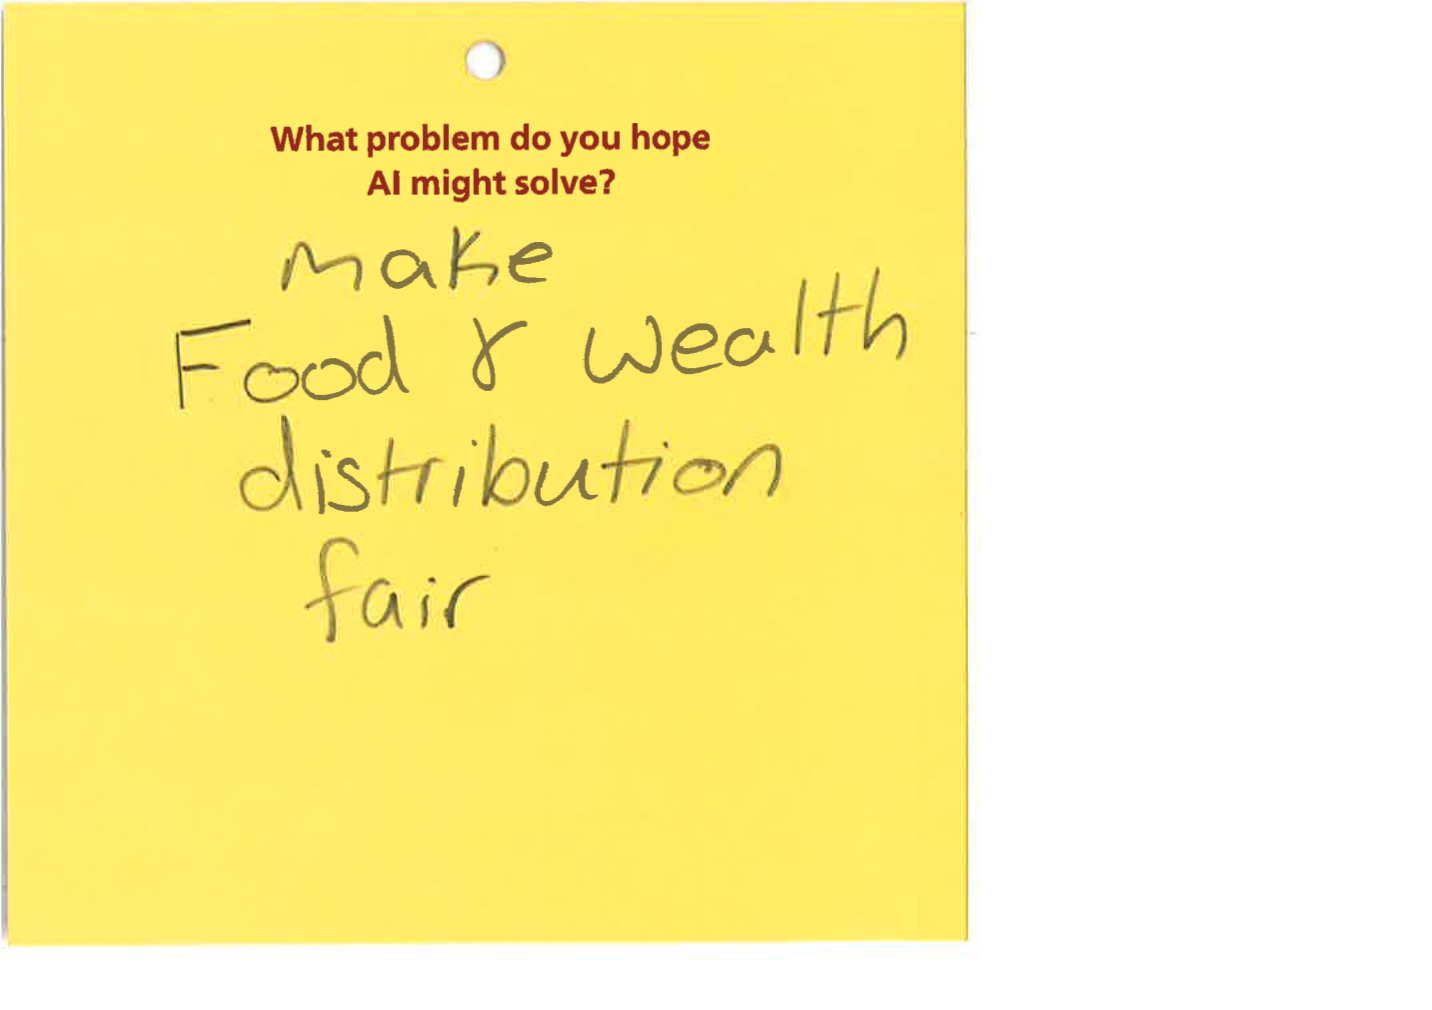 What problem do you hope
AI might solve?
make
Food & wealth
distribution
fair